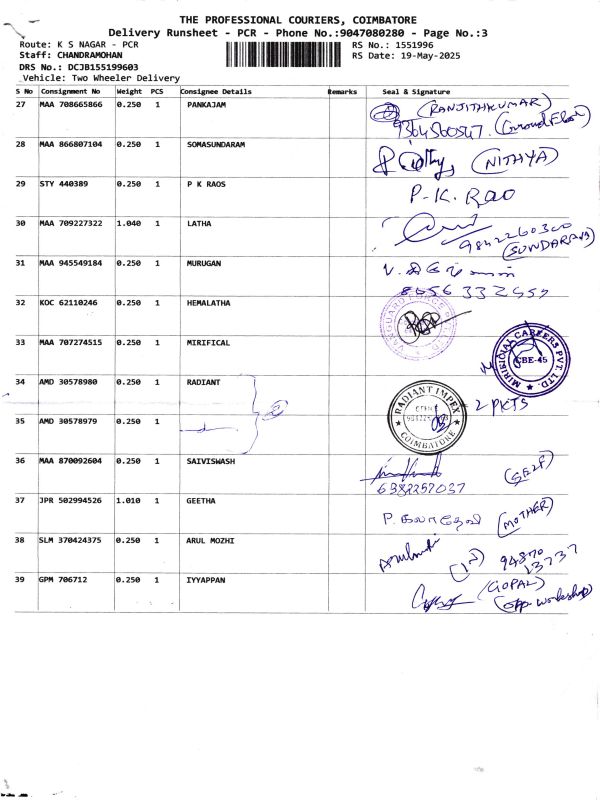 THE PROFESSIONAL COURIERS, COIMBATORE
Delivery Runsheet - PCR - Phone No.:9047080280 - Page No.:3
Route: K S NAGAR - PCR RS No.: 1551996
Staff: CHANDRAMOHAN RS Date: 19-May-2025
DRS No.: DCJB155199603
Vehicle: Two Wheeler Delivery
S No Consignment No Weight PCS Consignee Details Remarks Seal & Signature
27 MAA 708665866 0.250 1 PANKAJAM (RANJITHKUMAR)
(Ground Floor)
28 MAA 866807104 0.250 1 SOMASUNDARAM (NITHYA)
29 STY 440389 0.250 1 P K RAOS P.K. Rao
30 MAA 709227322 1.040 1 LATHA
9842260300
(SUNDARAM)
31 MAA 945549184 0.250 1 MURUGAN
32 KOC 62110246 0.250 1 HEMALATHA
33 MAA 707274515 0.250 1 MIRIFICAL CBE-45
34 AMD 30578980 0.250 1 RADIANT RADIANT IMPEX COIMBATORE 2 PKTS
35 AMD 30578979 0.250 1
36 MAA 870092604 0.250 1 SAIVISWASH (SELF)
6382257037
37 JPR 502994526 1.010 1 GEETHA P. கலாதேவி (MOTHER)
38 SLM 370424375 0.250 1 ARUL MOZHI 94870
13737
39 GPM 706712 0.250 1 IYYAPPAN (GOPAL)
(opp. workshop)